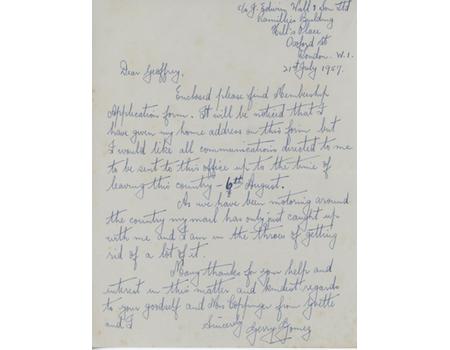 c/o G. Edwin Wall & Son Ltd
Ramillies Building
Hill's Place
Oxford St
London. W.1.
21st July 1957.
Dear Geoffrey,
Enclosed please find Membership
Application form. It will be noticed that I
have given my home address on this form but
I would like all communications directed to me
to be sent to this office up to the time of
leaving this country - 6th August.
As we have been motoring around
the country my mail has only just caught up
with me and I am in the throes of getting
rid of a lot of it.
Many thanks for your help and
interest in this matter and kindest regards
to your goodself and Mrs Coppinger from Yvette
and I
Sincerely
Gerry Gomez